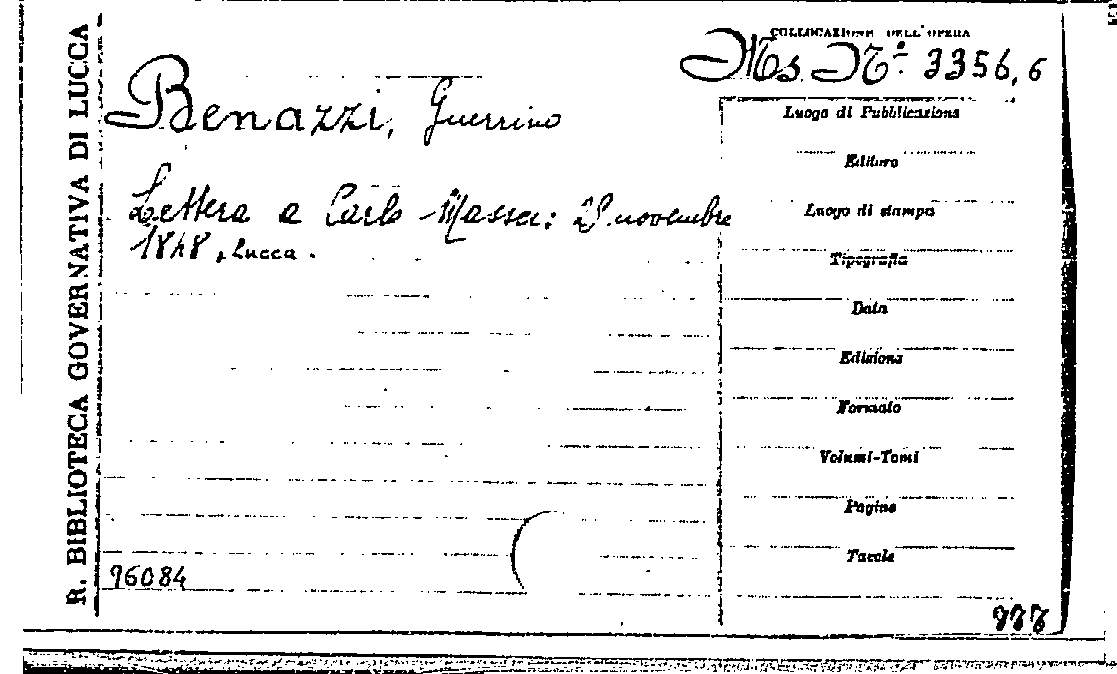 R. BIBLIOTECA GOVERNATIVA DI LUCCA
COLLOCAZIONE DELL'OPERA
Ms. Nº. 3356,6
Benazzi, Guerrino
Lettera a Carlo Massei: novembre
1848, Lucca.
Luogo di Pubblicazione
Editore
Luogo di stampa
Tipografia
Data
Edizione
Formato
Volumi-Tomi
Pagine
Tavole
96084